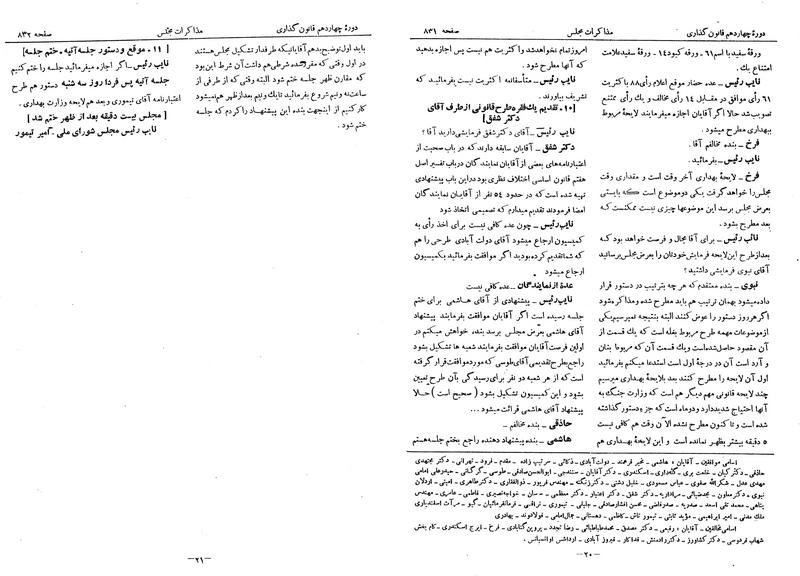 دورهٔ چهاردهم قانون گذاری
مذاکرات مجلس
صفحه ۸۳۱
ورقهٔ سفید با اسم ۶۱ - ورقه کبود ۱۴ - ورقه سفید علامت
امتناع یك.
نایب رئیس - عده حضار موقع اعلام رأی ۸۸ باکثریت
۶۱ رأی موافق در مقابل ۱۴ رأی مخالف و یك رأی ممتنع
تصویب شد حالا اگر آقایان اجازه میفرمایند لایحهٔ مربوط
ببهداری مطرح میشود.
فرخ - بنده مخالفم آقا.
نایب رئیس - بفرمائید.
فرخ - لایحهٔ بهداری آخر وقت است و مقداری وقت
مجلس را خواهد گرفت یکی دو موضوع است که بایستی
بعرض مجلس برسد این موضوعها چیزی نیست ممکنست که
بعد مطرح بشود.
نائب رئیس - برای آقا مجال و فرصت خواهد بود که
بعد از طرح این لایحه فرمایش خودتان را بعرض مجلس برسانید
آقای نبوی فرمایشی داشتید؟
نبوی - بنده معتقدم که هر چه بترتیب در دستور قرار
داده میشود بهمان ترتیب هم باید مطرح شده و مذاکره شود
اگر هر روز دستور را عوض کنند البته بنتیجه نمیرسیم یکی
از موضوعات مهمه طرح مربوط بغله است که یك قسمت از
آن مقصود حاصل شده است و یك قسمت آن که مربوط بنان
و آرد است آن در درجهٔ اول است استدعا میکنم بفرمائید
اول آن لایحه را مطرح کنند بعد بلایحهٔ بهداری میرسیم
چند لایحه قانونی مهم دیگر هم است که وزارت جنگ به
آنها احتیاج شدید دارد و دو ماه است که جزء دستور گذاشته
شده است و تا کنون مطرح نشده الآن وقت هم کافی نیست
۵ دقیقه بیشتر بظهر نمانده است و این لایحهٔ بهداری هم
امروز تمام نخواهد شد و اکثریت هم نیست پس اجازه بدهید
که آنها مطرح شود.
نایب رئیس - متأسفانه اکثریت نیست بفرمائید که
تشریف بیاورند.
[ ۱۰ - تقدیم یك فقره طرح قانونی از طرف آقای
دکتر شفق ]
نایب رئیس - آقای دکتر شفق فرمایشی دارید آقا؟
دکتر شفق - آقایان سابقه دارند که در باب صحبت از
اعتبارنامه‌های بعضی از آقایان نمایندگان در باب تفسیر اصل
هفتم قانون اساسی اختلاف نظری بود در این باب پیشنهادی
تهیه شده است که در حدود ۵۴ نفر از آقایان نمایندگان
امضا فرمودند تقدیم میدارم که تصمیمی اتخاذ شود
نایب رئیس - چون عده کافی نیست برای اخذ رأی به
کمیسیون ارجاع میشود آقای دولت آبادی طرحی را هم
که شما تقدیم کرده بودید اگر موافقت بفرمائید بکمیسیون
ارجاع میشود
عدهٔ از نمایندگان - عده کافی نیست
نایب رئیس - پیشنهادی از آقای هاشمی برای ختم
جلسه رسیده است اگر آقایان موافقت بفرمایند پیشنهاد
آقای هاشمی بعرض مجلس برسد بنده، خواهش میکنم در
اولین فرصت آقایان موافقت بفرمایند شعبه ها تشکیل بشود
راجع بطرح تقدیمی آقای طوسی که مورد موافقت قرار گرفته
است که از هر شعبه دو نفر برای رسیدگی بآن طرح تعیین
بشود و این کمیسیون تشکیل بشود ( صحیح است ) حالا
پیشنهاد آقای هاشمی قرائت میشود...
حاذقی - بنده مخالفم -
هاشمی - بنده پیشنهاد دهنده راجع بختم جلسه هستم
اسامی موافقین - آقایان :
هاشمی - دولت آبادی - ذکائی - مرتب زاده - مقدم - فرود - تهرانی - دکتر مجتهدی
اسامی مخالفین - آقایان : رفیعی - دکتر مصدق - محمد طباطبائی - رضا تجدد - پروین گنابادی - فرخ - ایرج اسکندری - کام بخش
شهاب فردوسی - دکتر کشاورز - دکتر رادمنش - فداکار - فیروز آبادی - اردشیر اوانسیانس.
- ۲۰ -
دورهٔ چهاردهم قانون گذاری
مذاکرات مجلس
صفحه ۸۳۲
باید اول توضیح بدهم آقایانیکه طرفدار تشکیل مجلس هستند
در اول وقتی که مقرر شده شرطی هم داشت آن شرط این بود
که مقارن ظهر جلسه ختم شود البته وقتی که از طرفی از
ساعت نه و نیم شروع بفرمائید تا یك و نیم بعد از ظهر هم نمیشود
کار کنیم از اینجهت بنده این پیشنهاد را کردم که جلسه
ختم شود.
[ ۱۱ - موقع و دستور جلسه آتیه - ختم جلسه ]
نایب رئیس - اگر اجازه میفرمائید جلسه را ختم کنیم
جلسه آتیه پس فردا روز سه شنبه دستور هم طرح
اعتبارنامه آقای تیموری و بعد هم لایحه وزارت بهداری.
[ مجلس بیست دقیقه بعد از ظهر ختم شد ]
نایب رئیس مجلس شورای ملی - امیر تیمور
- ۲۱ -